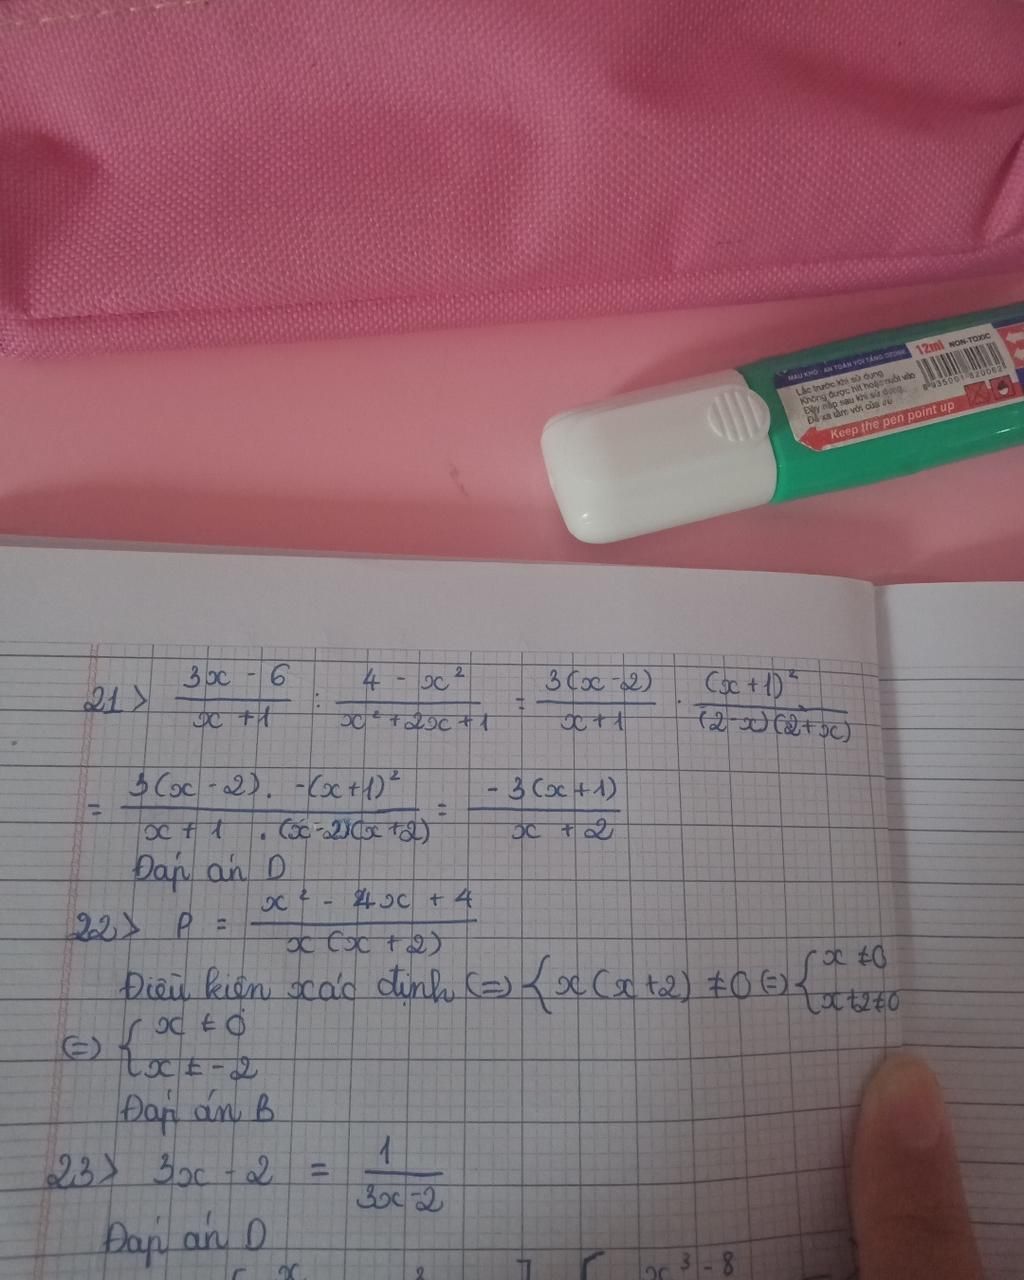 MÀU KHÔ - AN TOÀN VỚI TẦNG OZONE 12ml NON-TOXIC
Lắc trước khi sử dụng
Không được hít hoặc nuốt vào
Đậy nắp sau khi sử dụng
Để xa tầm với của
Keep the pen point up
21> (3x - 6)/(x + 1) : (4 - x²)/(x² + 2x + 1) = 3(x - 2)/(x + 1) . (x + 1)²/((2 - x)(2 + x))
= (3(x - 2) . -(x + 1)²)/(x + 1 . (x - 2)(x + 2)) = (- 3(x + 1))/(x + 2)
Đáp án D
22> P = (x² - 4x + 4)/(x (x + 2))
Điều kiện xác định (=) { x (x + 2) ≠ 0 (=) { x ≠ 0
x + 2 ≠ 0
(=) { x ≠ 0
x ≠ - 2
Đáp án B
23> 3x - 2 = 1/(3x - 2)
Đáp án D
x³ - 8